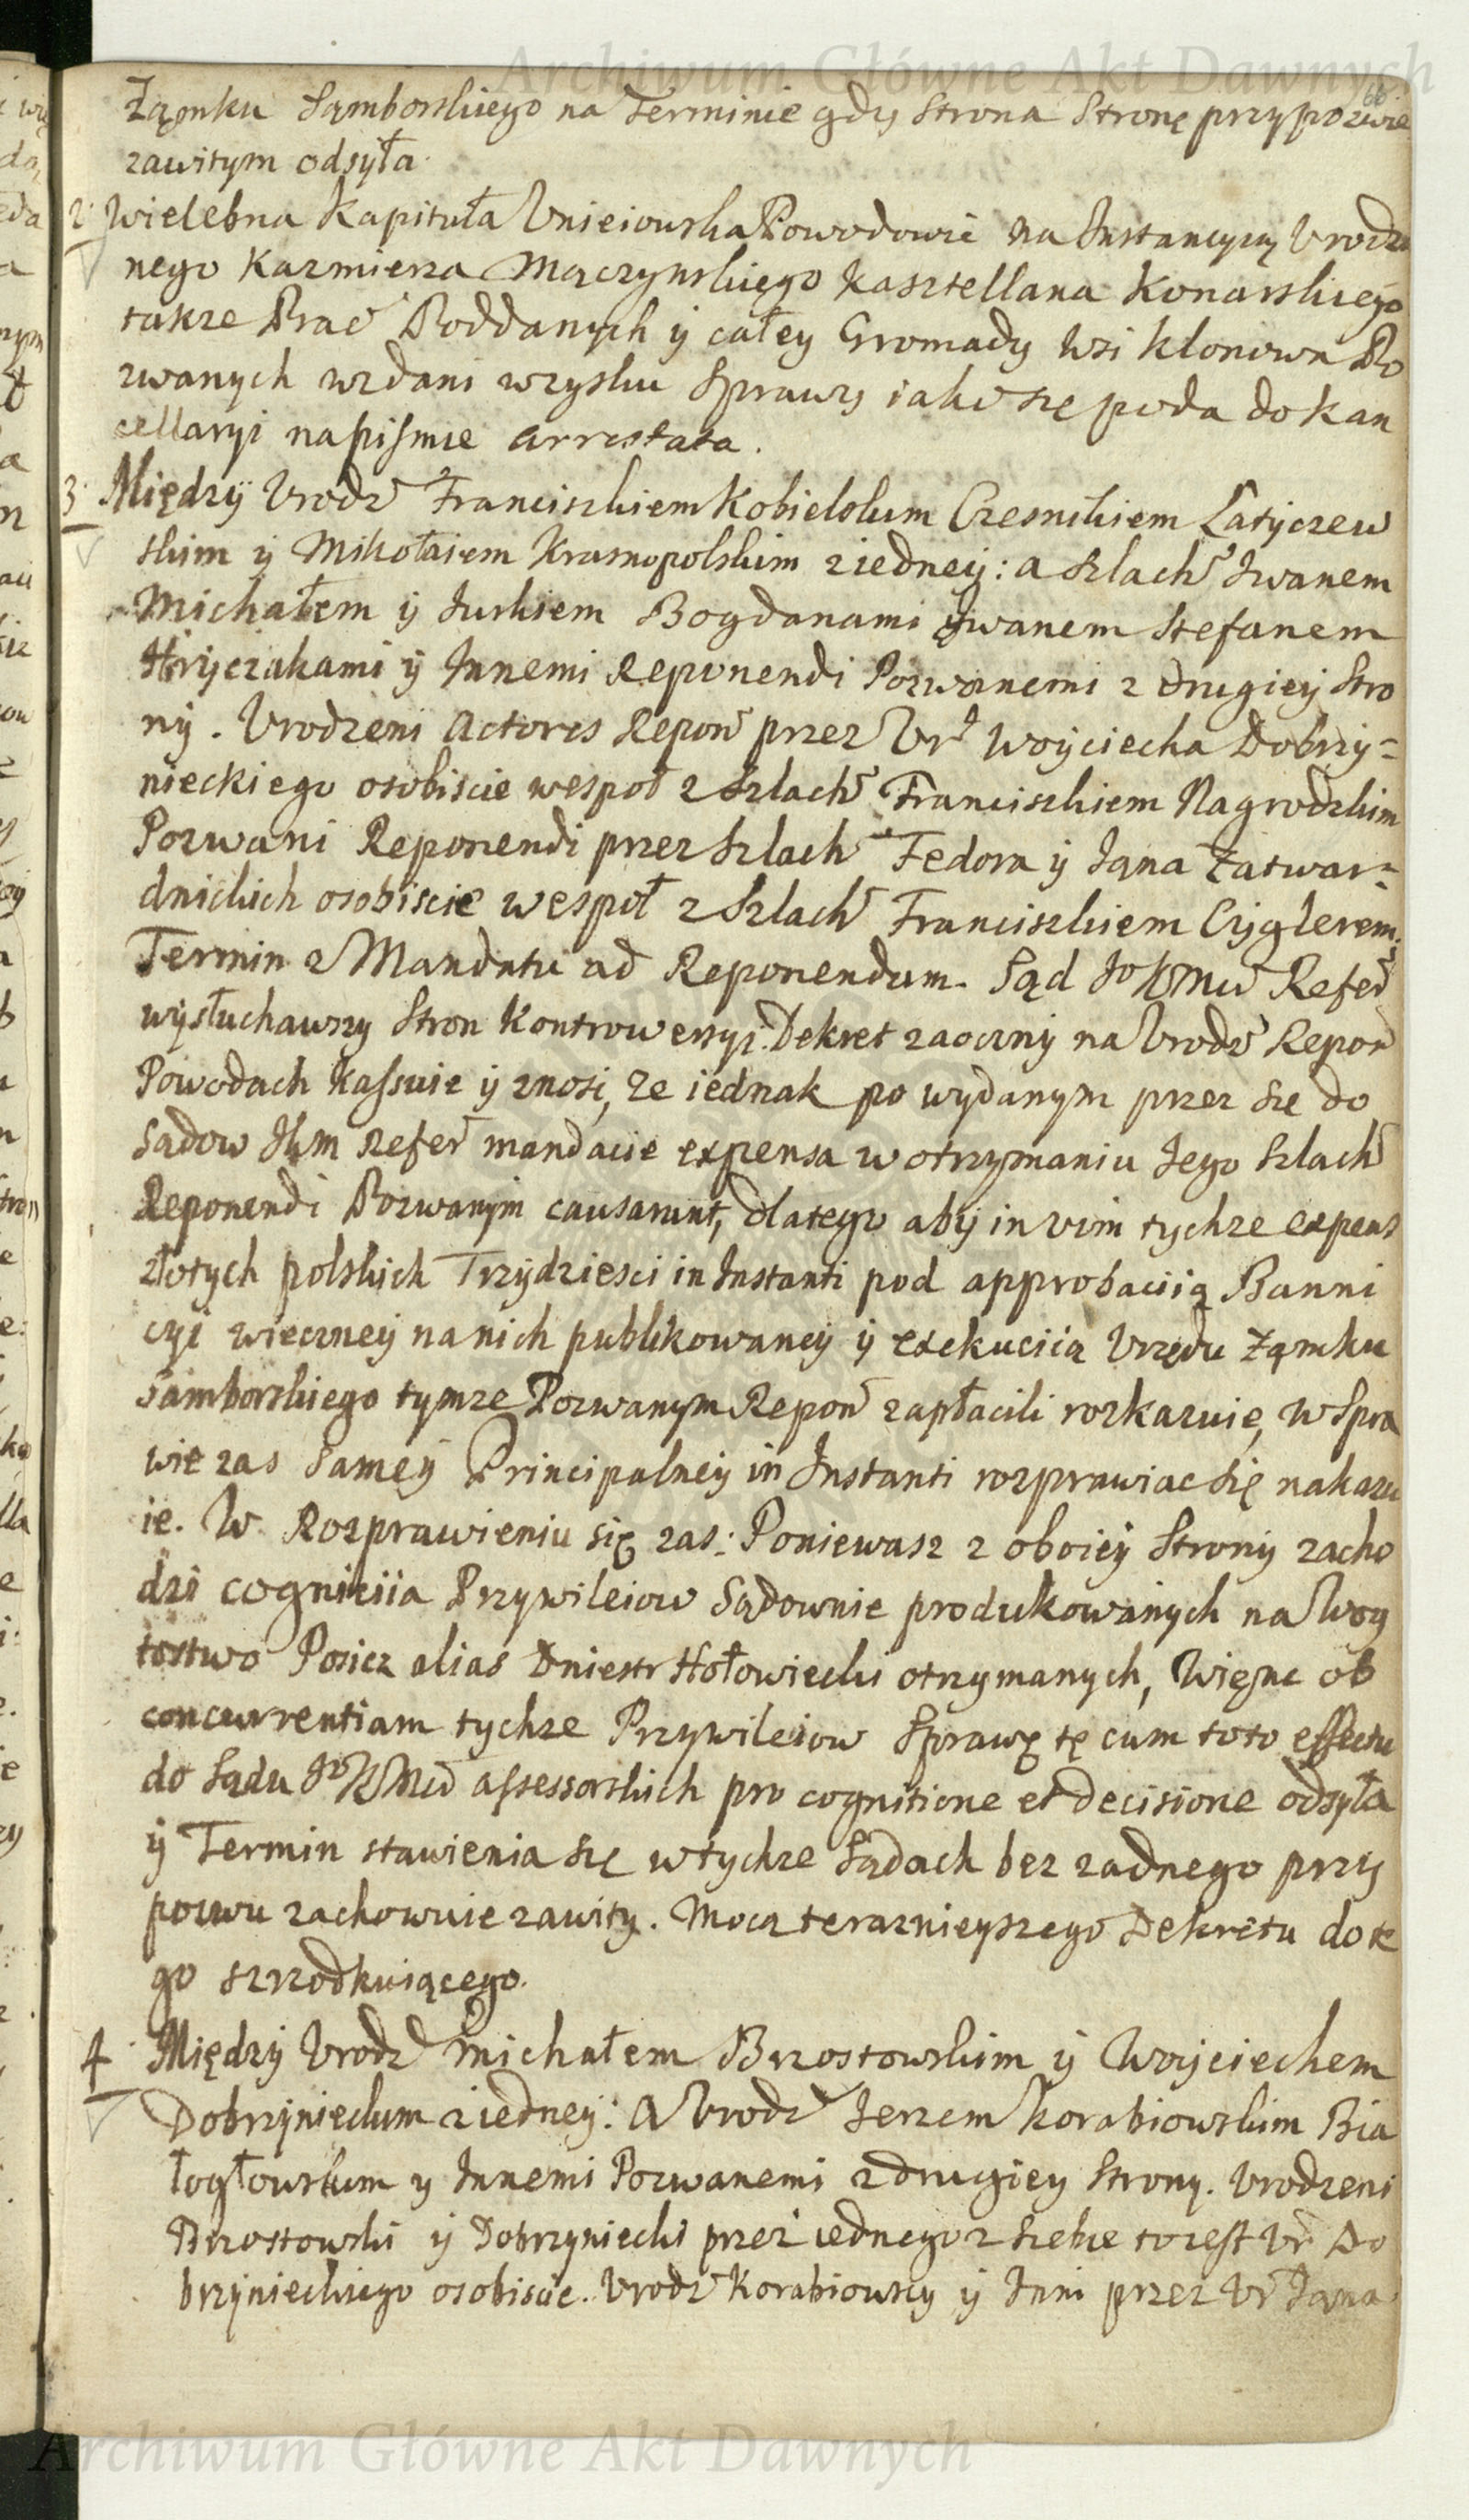 Archiwum Główne Akt Dawnych
66
Ząmku Sąmborskiego na Terminie gdy Strona Stronę przypozwie
zawitym odsyła.
2. Wielebna Kapituła Vnieiowska Powodowie na Instancyią Vrodzo
nego Kazmierza Mączynskiego Kasztellana Konarskiego
takze Prac Poddanych ÿ całey Gromady Wsi Klonowa Po
zwanych wzdani wzysku Sprawy iako się poda do Kan
cellaryi na piśmie arrestata.
3. Między Vrodz Franciszkiem Kobielskim Czesnikiem Latyczew
skim ÿ Mikołaiem Krasnopolskim z iedney: a Szlach Iwanem
Michałem ÿ Iurkiem Bogdanami Iwanem Stefanem
Hryczakami ÿ Innemi Reponendi Pozwanemi z drugiey Stro
ny. Vrodzeni Actores Repon przez Vr Woyciecha Dobrzy=
nieckiego osobiscie wespoł z Szlach Franciszkiem Nagrodzkim
Pozwani Reponendi przez Szlach Fedora ÿ Iąna Zatwar=
dnickich osobiscie wespoł z Szlach Franciszkiem Cyglerem.
Termin z Mandatu ad Reponendum. Sąd Jo K Mci Refer
wysłuchawszy Stron Kontrowersyi. Dekret zaoczny na Vrodz Repon
Powodach kassuie ÿ znosi, ze iednak po wydanym przez się do
Sądow JKm Refer mandacie expensa w otrzymaniu Iego Szlach
Reponendi Pozwanym causarunt, dlatego aby in vim tychze expens
złotych polskich Trzydziesci in Instanti pod approbaciią Banni
cyi wieczney na nich publikowaney ÿ exekuciią Vrzędu Ząmku
Samborskiego tymze Pozwanym Repon zapłacili rozkazuie, w Spra
wie zas Samey Principalney in Instanti rozprawiac się nakazu
ie. W Rozprawieniu się zas: Poniewasz z oboiey Strony zacho
dzi cogniciia Przywileiow Sądownie produkowanych na Woy
tostwo Posicz alias Dniestr Hołowiecki otrzymanych, Więnc ob
concurrentiam tychze Przywileiow Sprawę tę cum toto effectu
do Sądu Jo K Mci assessorskich pro cognitione et decisione odsyła
ÿ Termin stawienia się w tychze Sądach bez zadnego przy
pozwu zachowuie zawity. Mocą teraznieyszego Dekretu do te
go szrzodkuiącego.
4 Między Vrodz Michałem Brzostowskim ÿ Woyciechem
Dobrzynieckim z iedney: A Vrodz Ierzem Korabiowskim Bia
łogłowskim y Innemi Pozwanemi z drugiey Strony. Vrodzeni
Brzostowski ÿ Dobrzyniecki przez iednego z siebie to iest Vr Do
brzynieckiego osobiscie. Vrodz Korabiowscy ÿ Inni przez Vr Iąna
Archiwum Główne Akt Dawnych